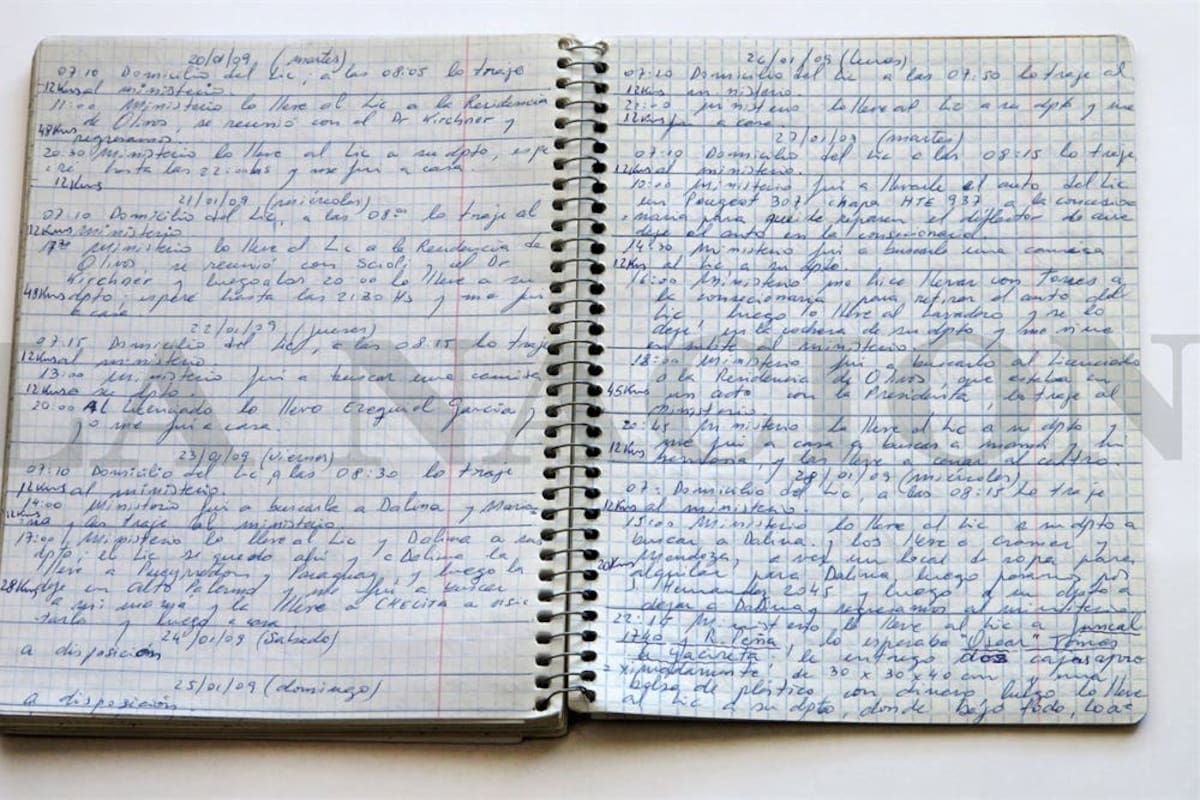 20/01/09 (martes)
07.10 Domicilio del Lic, a las 08:05 lo traje
12Kms al ministerio.
11:00 Ministerio lo lleve al Lic a la Residencia
de Olivos, se reunió con el Dr Kirchner y
48Kms regresamos.
20:30 Ministerio lo lleve al Lic a su dpto, espe
re hasta las 22:00hs y me fui a casa.
12Kms
21/01/09 (miércoles)
07.10 Domicilio del Lic, a las 08:00 lo traje al
12Kms ministerio
Ministerio lo lleve al Lic a la Residencia de
Olivos, se reunió con Scioli y el Dr
Kirchner y luego a las 20:00 lo lleve a su
48Kms dpto; esperé hasta las 21:30 Hs y me fui
a casa.
22/01/09 (jueves)
07.15 Domicilio del Lic, a las 08:15 lo traje
12Kms al ministerio
13:00 Ministerio fui a buscar una camisa
12Kms a su dpto.
20:00 Al Licenciado lo llevo Ezequiel García y
yo me fui a casa.
23/01/09 (viernes)
07:10 Domicilio del Lic, a las 08:30 lo traje
12Kms al ministerio.
14:00 Ministerio fui a buscarla a Dalina y Maria
12Kms y las traje al ministerio.
17:00 Ministerio lo lleve al Lic y Dalina a su
dpto; el Lic se quedo ahí y a Dalina la
lleve a Pueyrredon y Paraguay y luego la
28Kms deje en Alto Palermo y me fui a buscar
a mi mama y la lleve a CHELITA a visi
tarla y luego a casa
24/01/09 (Sabado)
a disposición
25/01/09 (domingo)
a disposición
26/01/09 (lunes)
07:10 Domicilio del Lic a las 07:50 lo traje al
12Kms ministerio.
21:00 Ministerio lo lleve al Lic a su dpto y me
12Kms fui a casa.
27/01/09 (martes)
07:10 Domicilio del Lic a las 08:15 lo traje
12Kms al ministerio.
10:00 Ministerio fui a llevarle el auto del Lic
un Peugeot 307 chapa HTE 937 a la concesio
naria para que le reparen el deflector de aire
deje el auto en la consecionaria.
14:30 Ministerio fui a buscarle una camisa
12Kms al Lic a su dpto.
16:00 Ministerio me hice llevar con Torres a
la consecionaria para retirar el auto del
Lic, luego lo lleve al Lavadero y se lo
dejé en la cochera de su dpto y me vine
en subte al ministerio.
18:00 Ministerio fui a buscarlo al Licenciado
a la Residencia de Olivos, que estaba en
45Kms un acto con la Presidenta, lo traje al
ministerio
20:45 Ministerio lo lleve al Lic a su dpto y
12Kms me fui a casa a buscar a mama y mi
hermana, y las lleve a cenar al centro.
28/01/09 (miércoles)
07: Domicilio del Lic, a las 08:15 lo traje
12Kms al ministerio.
15:00 Ministerio lo lleve al Lic a su dpto a
buscar a Dalina, y los lleve a Cramer y
20Kms Mendoza, a ver un local de ropa para
alquilar para Dalina, luego pasamos por
Hernandez 2045 y luego a su dpto a
dejar a Dalina y regresamos al ministerio
22:15 Ministerio lo lleve al Lic a Juncal
1740 y R. Peña, lo esperaba "Oscar" Tomas
de Yacireta, le entrego dos cajas apro
ximadamente de 30 x 30 x 40 cm y una
bolsa de plástico con dinero, luego lo lleve
al Lic a su dpto, donde bajo todo, lo a=
LA NACION